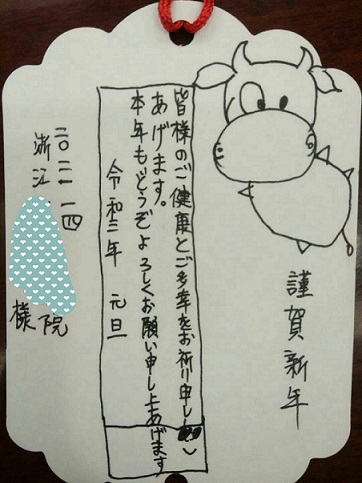 謹賀新年
皆様のご健康とご多幸をお祈り申し
あげます。
本年もどうぞよろしくお願い申し上あげます
令和三年 元旦
二〇二一 一四
浙江
院
様